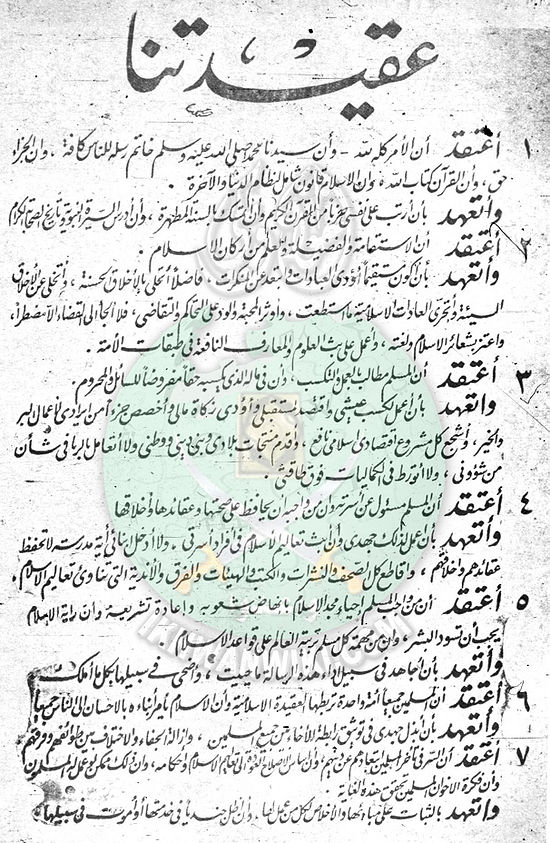 عقيدتنا
١ أعتقد أن الأمر كله لله - وأن سيدنا محمد صلى الله عليه وسلم خاتم رسله للناس كافة ، وأن الجزاء
حق ، وأن القرآن كتاب الله ، وأن الإسلام قانون شامل لنظام الدنيا والآخرة
وأتعهد بأن أرتب على نفسى حزبا من القرآن الكريم وأن أتمسك بالسنة المطهرة ، وأن أدرس السيرة النبوية وتاريخ الصحابة الكرام
٢ أعتقد أن الاستقامة والفضيلة والعلم من أركان الإسلام .
وأتعهد بأن أكون مستقيما أؤدى العبادات وأبتعد عن المنكرات ، فاضلا أتحلى بالأخلاق الحسنة ، وأتخلى عن الأخلاق
السيئة وأتحرى العادات الإسلامية ما استطعت ، وأوثر المحبة والود على التحاكم والتقاضى ، فلا ألجأ إلى القضاء إلا مضطرا ،
وأعتز بشعائر الإسلام ولغته ، وأعمل على بث العلوم والمعارف النافعة فى طبقات الأمة .
٣ أعتقد أن المسلم مطالب بالعمل والتكسب ، وأن فى ماله الذى يكسبه حقا مفروضا للسائل والمحروم
وأتعهد بأن أعمل لكسب عيشى وأقتصد لمستقبلى وأؤدى زكاة مالى وأخصص جزءا من إيرادى لأعمال البر
والخير ، وأشجع كل مشروع اقتصادى إسلامى نافع ، وأقدم منتجات بلادى وبنى دينى ووطنى ولا أتعامل بالربا فى شأن
من شؤونى ، ولا أتورط فى الكماليات فوق طاقتى .
٤ أعتقد أن المسلم مسئول عن أسرته وأن من واجبه أن يحافظ على صحتها وعقائدها وأخلاقها
وأتعهد بأن أعمل لذلك جهدى وأن أبث تعاليم الإسلام فى أفراد أسرتى ، ولا أدخل أبنائى أية مدرسة لا تحفظ
عقائدهم وأخلاقهم ، وأقاطع كل الصحف والنشرات والكتب والهيئات والفرق والأندية التى تناوئ تعاليم الإسلام .
٥ أعتقد أن من واجب المسلم إحياء مجد الإسلام بإنهاض شعوبه وإعادة تشريعه وأن راية الإسلام
يجب أن تسود البشر ، وأن من مهمة كل مسلم تربية العالم على قواعد الإسلام
وأتعهد بأن أجاهد فى سبيل أداء هذه الرسالة ما حييت ، وأضحى فى سبيلها بكل ما أملك
٦ أعتقد أن المسلمين جميعا أمة واحدة تربطها العقيدة الإسلامية وأن الإسلام يأمر أبناءه بالإحسان إلى الناس جميعا
وأتعهد بأن أبذل جهدى فى توثيق رابطة الإخاء بين جميع المسلمين ، وإزالة الجفاء والاختلاف بين طوائفهم وفرقهم
٧ أعتقد أن السر فى تأخر المسلمين ابتعادهم عن دينهم وأن أساس الإصلاح العودة إلى تعاليم الإسلام وأحكامه ، وأن ذلك ممكن لو عمل له المسلمون
وأن فكرة الإخوان المسلمين تحقق هذه الغاية
وأتعهد بالثبات على مبادئها والإخلاص لكل من عمل لها . وأن أظل جنديا فى خدمتها أو أموت فى سبيلها
IKHWANWIKI.COM